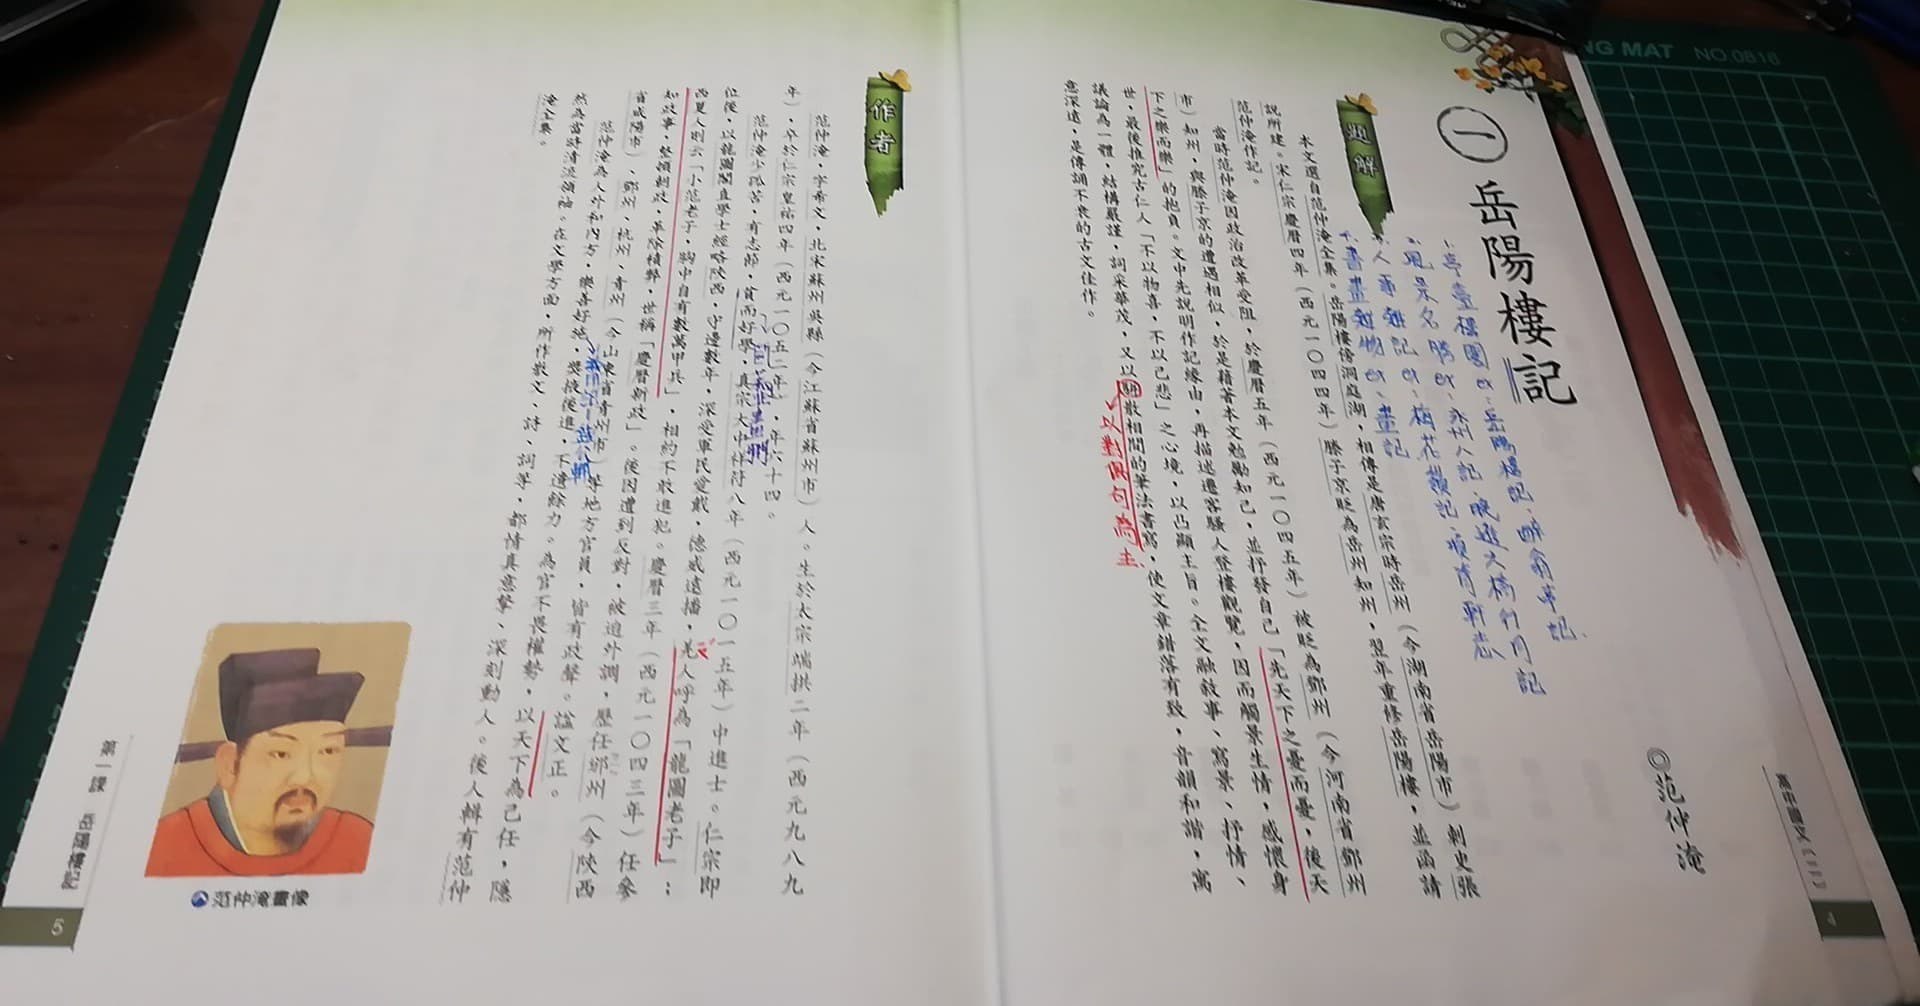 NG MAT NO.0816
高中國文(二)
4
一
岳陽樓記
◎范仲淹
1.亭臺樓閣 ex:岳陽樓記、醉翁亭記
2.風景名勝 ex.永州八記、晚遊六橋待月記
人事雜記 ex.梅花嶺記、項脊軒志
書畫雜物 ex.畫記
題解
本文選自范仲淹全集。岳陽樓傍洞庭湖,相傳是唐玄宗時岳州(今湖南省岳陽市)刺史張
說所建。宋仁宗慶曆四年(西元一〇四四年)滕子京貶為岳州知州,翌年重修岳陽樓,並函請
范仲淹作記。
當時范仲淹因政治改革受阻,於慶曆五年(西元一〇四五年)被貶為鄧州(今河南省鄧州
市)知州,與滕子京的遭遇相似,於是藉著本文勉勵知己,並抒發自己「先天下之憂而憂,後天
下之樂而樂」的抱負。文中先說明作記緣由,再描述遷客騷人登樓觀覽,因而觸景生情,感懷身
世,最後推究古仁人「不以物喜,不以己悲」之心境,以凸顯主旨。全文融敘事、寫景、抒情、
議論為一體,結構嚴謹,詞采華茂,又以駢散相間的筆法書寫,使文章錯落有致,音韻和諧,寓
意深遠,是傳誦不衰的古文佳作。
以對偶句為主
作者
范仲淹,字希文,北宋蘇州吳縣(今江蘇省蘇州市)人。生於太宗端拱二年(西元九八九
年),卒於仁宗皇祐四年(西元一〇五二年),年六十四。
范仲淹少孤苦,有志節,貧而好學,真宗大中祥符八年(西元一〇一五年)中進士。仁宗即
位後,以龍圖閣直學士經略陝西,守邊數年,深受軍民愛戴,德威遠播,羌人呼為「龍圖老子」;
西夏人則云「小范老子,胸中自有數萬甲兵」,相約不敢進犯。慶曆三年(西元一〇四三年)任參
知政事,整頓朝政,革除積弊,世稱「慶曆新政」。後因遭到反對,被迫外調,歷任邠州(今陝西
省咸陽市)、鄧州、杭州、青州(今山東省青州市)等地方官員,皆有政聲。諡文正。
范仲淹為人外和內方,樂善好施,獎掖後進,不遺餘力。為官不畏權勢,以天下為己任,隱
然為當時清流領袖。在文學方面,所作散文、詩、詞等,都情真意摯、深刻動人。後人輯有范仲
淹全集。
范仲淹畫像
第一課 岳陽樓記
5